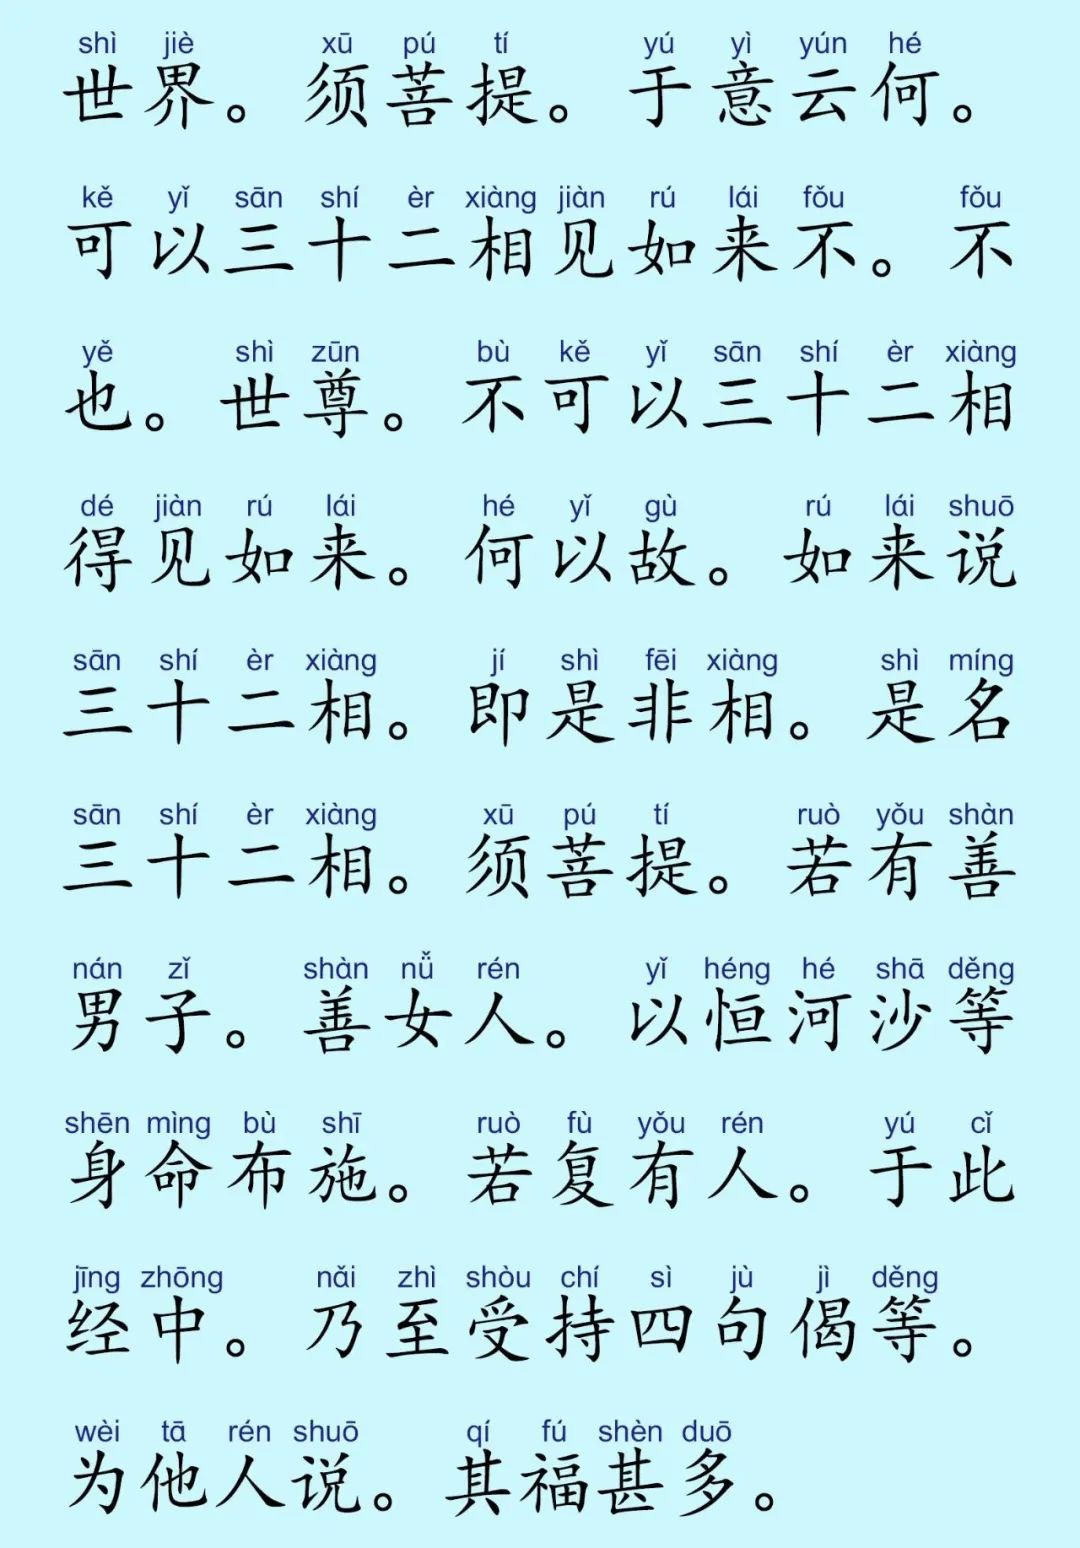 shì jiè xū pú tí yú yì yún hé
世界。须菩提。于意云何。
kě yǐ sān shí èr xiàng jiàn rú lái fǒu fǒu
可以三十二相见如来不。不
yě shì zūn bù kě yǐ sān shí èr xiàng
也。世尊。不可以三十二相
dé jiàn rú lái hé yǐ gù rú lái shuō
得见如来。何以故。如来说
sān shí èr xiàng jí shì fēi xiàng shì míng
三十二相。即是非相。是名
sān shí èr xiàng xū pú tí ruò yǒu shàn
三十二相。须菩提。若有善
nán zǐ shàn nǚ rén yǐ héng hé shā děng
男子。善女人。以恒河沙等
shēn mìng bù shī ruò fù yǒu rén yú cǐ
身命布施。若复有人。于此
jīng zhōng nǎi zhì shòu chí sì jù jì děng
经中。乃至受持四句偈等。
wèi tā rén shuō qí fú shèn duō
为他人说。其福甚多。